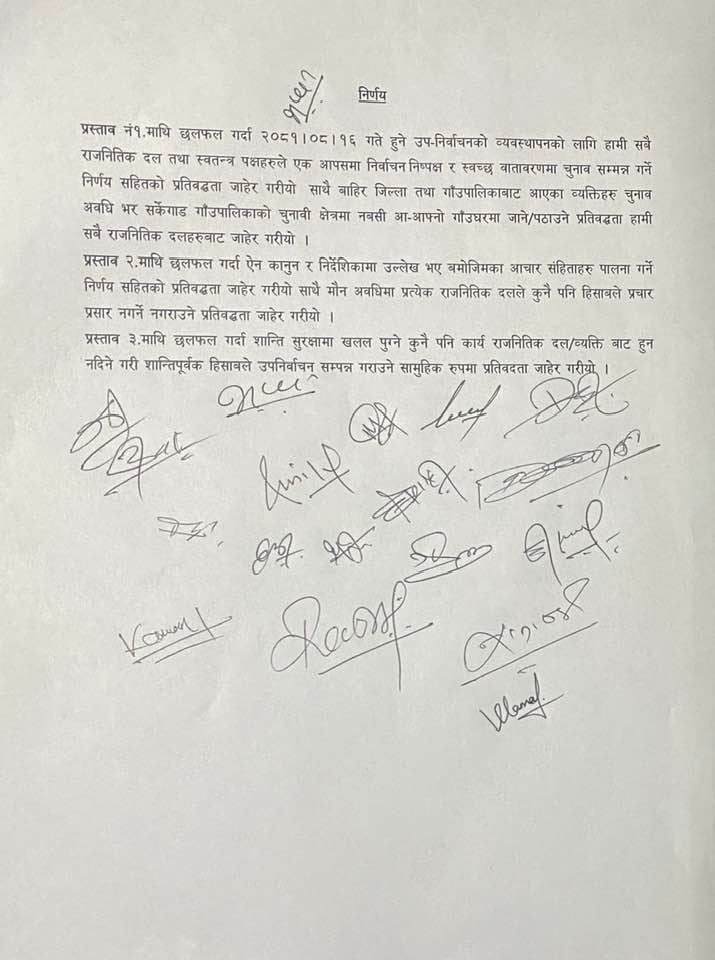 निर्णय
प्रस्ताव नं१.माथि छलफल गर्दा २०८१।०८।१६ गते हुने उप-निर्वाचनको व्यवस्थापनको लागि हामी सबै
राजनितिक दल तथा स्वतन्त्र पक्षहरुले एक आपसमा निर्वाचन निष्पक्ष र स्वच्छ वातावरणमा चुनाव सम्मन्न गर्ने
निर्णय सहितको प्रतिवद्धता जाहेर गरीयो साथै बाहिर जिल्ला तथा गाँउपालिकाबाट आएका व्यक्तिहरु चुनाव
अवधि भर सर्केगाड गाँउपालिकाको चुनावी क्षेत्रमा नवसी आ-आफ्नो गाँउघरमा जाने/पठाउने प्रतिवद्धता हामी
सबै राजनितिक दलहरुबाट जाहेर गरीयो ।
प्रस्ताव २.माथि छलफल गर्दा ऐन कानुन र निर्देशिकामा उल्लेख भए बमोजिमका आचार संहिताहरु पालना गर्ने
निर्णय सहितको प्रतिवद्धता जाहेर गरीयो साथै मौन अवधिमा प्रत्येक राजनितिक दलले कुनै पनि हिसाबले प्रचार
प्रसार नगर्ने नगराउने प्रतिवद्धता जाहेर गरीयो ।
प्रस्ताव ३.माथि छलफल गर्दा शान्ति सुरक्षामा खलल पुग्ने कुनै पनि कार्य राजनितिक दल/व्यक्ति बाट हुन
नदिने गरी शान्तिपूर्वक हिसाबले उपनिर्वाचन सम्पन्न गराउने सामुहिक रुपमा प्रतिवदता जाहेर गरीयो ।